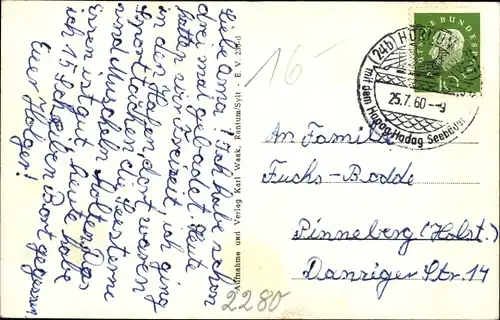 Liebe Oma! Ich habe schon
drei mal gebadet. Heute
hatten wir Freizeit, ich ging
in den Hafen dort waren
Sportlachen die Seesterne
und Muscheln holten. Das
Essen ist gut heute habe
ich 15 Scheiben Brot gegessen,
Euer Holger!
Aufnahme und Verlag Karl Waak, Rantum/Sylt . E. V. 226d
16-
2280
(24b) HÖRNUM
25.7.60--9
mit den Hapag-Hadag Seebäder
DEUTSCHE BUNDESPOST
10
An Familie
Fuchs-Bodde
Pinneberg (Holst.)
Danziger Str. 14